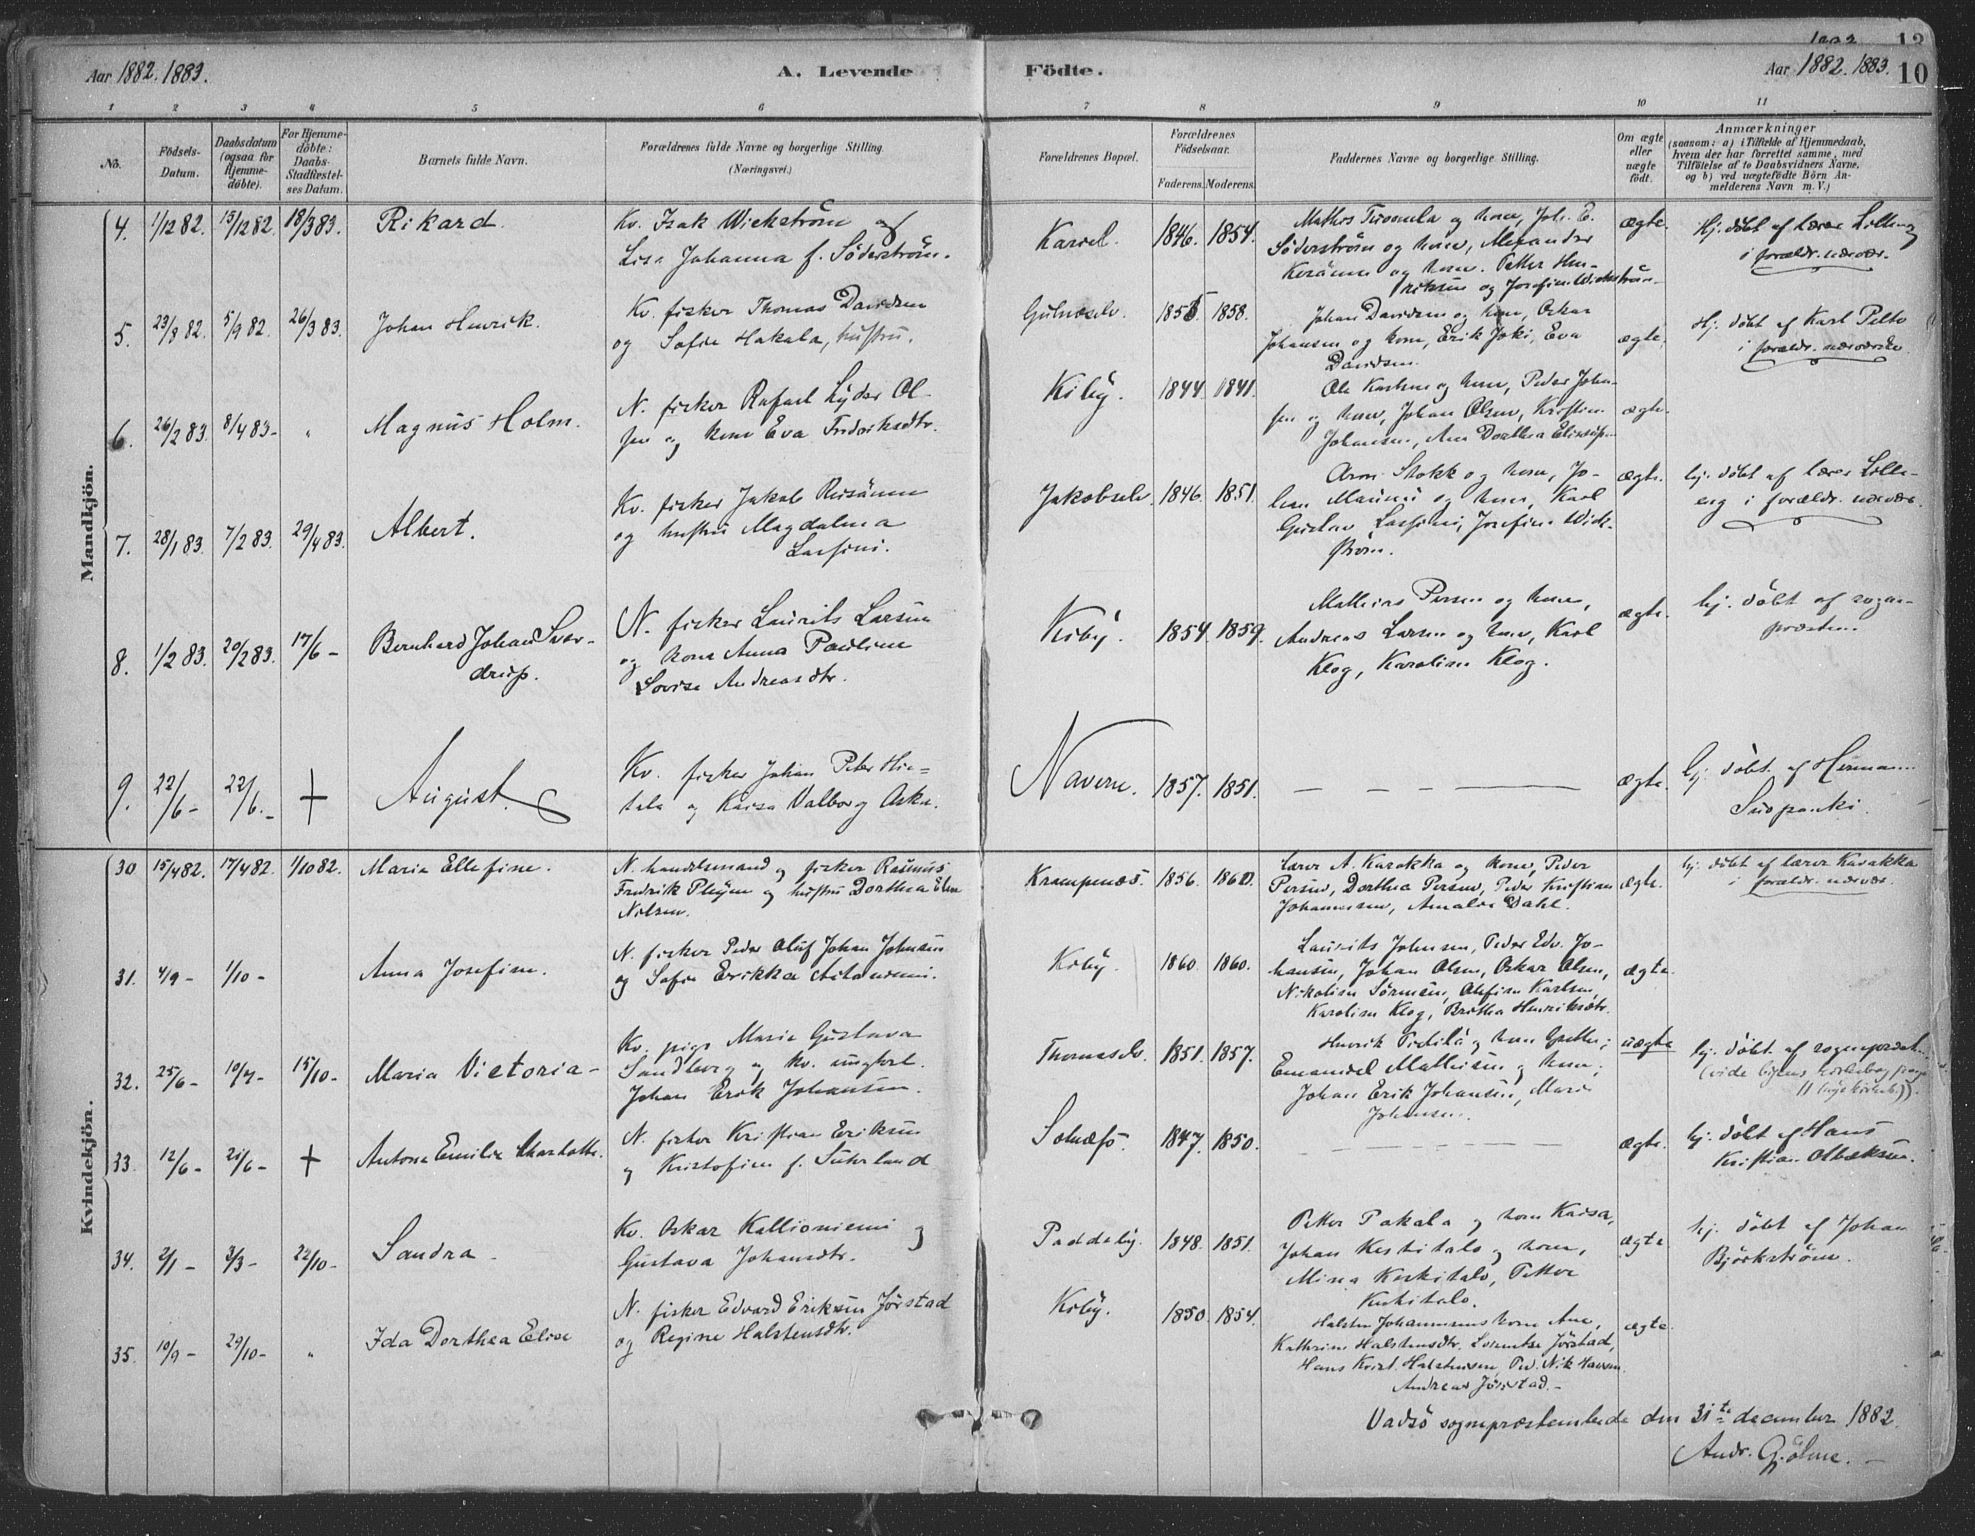 Aar 1882. 1883.
A. Levende
Födte.
Aar 1882. 1883.
10
1 2 3 4 5 6 7 8 9 10 11
No.
Födsels-Datum.
Daabsdatum (ogsaa for Hjemmedøbte).
For Hjemmedöbte: Daabs-Stadfæstelses Datum.
Barnets fulde Navn.
Forældrenes fulde Navne og borgerlige Stilling (Næringsvei.)
Forældrenes Bopæl.
Forældrenes Födselsaar.
Faderens. Moderens.
Faddernes Navne og borgerlige Stilling.
Om ægte eller uægte födt.
Anmærkninger
(saasom: a) i Tilfælde af Hjemmedaab, hvem der har forrettet samme, med Tilföielse af to Daabsvidners Navne, og b) ved uægtefödte Börn Anmelderens Navn m. V.)
Mandkjön.
4. 1/12 82. 15/12 82 18/3 83. Rikard.
Kv. Isak Wickström og
Lisa Johanna f. Söderström.
Karvel. 1846. 1854.
og kone, Joh. E.
Söderström og kone, Alexander
og kone. Petter Hen-
riksen og Josefine Wickström.
ægte.
Hj. döbt af lærer
i forældr. nærvær.
5. 23/8 82. 5/9 82. 26/3 83. Johan Henrik.
Kv. fisker Thomas Davidsen
og Sofie Hakala, hustru.
1855 1858.
Johan Davidsen og kone, Oskar
Johansen og kone, Erik Joki, Eva
Davidsen.
ægte.
Hj. döbt af Karl Pelto
i forældr. nærværelse.
6. 26/2 83. 8/4 83- " Magnus Holm.
N. fisker Rafael Lyder Ol-
sen og kone Eva Fredriksdtr.
Kiby. 1844. 1841.
Ole og kone, Peder Johan-
sen og kone, Johan Olsen, Kirstine
Johansen, Ane Dorthea
ægte.
7. 28/1 83. 7/2 83. 29/4 83. Albert.
Kv. fisker Jakob
og hustru Magdalena
Lassini.
Jakobselv. 1846. 1851.
Aron Stokk og kone, Jo-
han og kone, Karl
Gustav Lassini, Josefine Wick-
ström.
ægte.
hj. döbt af lærer
i forældr. nærvær.
8. 1/2 83. 20/2 83. 17/6 - Bernhard Johan Sver-
drup.
N. fisker Laurits Larsen
og kone Anna Pauline
Lovise Andreasdtr.
Kiby. 1854. 1859.
Mathias Persen og kone,
Andreas Larsen og kone, Karl
Klog, Karoline Klog.
ægte.
hj. döbt af sogne-
præsten.
9. 22/6 - 22/6. - + August.
Kv. fisker Johan Peter Hie-
tala og Kaisa Valborg
Naverne. 1857. 1851.
— — — ———
ægte.
hj. döbt af Herman
Kvindekjön.
30 15/4 82. 17/4 82. 1/10 82. Maria Ellefine.
N. handelsmand og fisker Rasmus
Fredrik og hustru Dorthea
Nilsen.
Krampenæs. 1856. 1860.
Lærer A. Karakka og kone, Peder
Persen, Dorthea Persen, Peder Kristian
Johannesen, Amalie Dahl.
ægte.
hj. döbt af lærer Karakka
i forældr. nærvær.
31. 4/9 - 1/10 - Anna Josefine.
N. fisker Peder Oluf Johan Johnsen
og Sofie Erikka
Kiby. 1860. 1860.
Laurits Johnsen, Peder Edv. Jo-
hansen, Johan Olsen, Oskar Olsen,
Nikoline Sörensen, Olefine Karlsen,
Karoline Klog, Brithe Henriksdtr.
ægte
32. 25/6 - 10/7 - 15/10 - Maria Victoria -
Kv. pige Maria Gustava
Sandberg og Kv. ungkarl
Johan Erik Johansen.
Thomaselv. 1851. 1857.
Henrik og kone Grethe;
Emanuel Mathisen og kone;
Johan Erik Johansen, Maria
Johansen.
uægte
hj. döbt af sognepræst
33. 12/6 - 21/6 - + Antone Emilie Charlotte.
N. fisker Kristian Eriksen
og Kristofine f. Suhrland
1847. 1850.
— — — —
ægte.
hj. döbt af Hans
Kristian
34. 2/1 - 3/3 - 22/10 - Sandra -
Kv. Oskar Kallioniemi og
Gustava Johansdtr.
Paddeby. 1848. 1851.
Petter Pakala og kone Kaisa,
Johan Keskitalo og kone,
Mina Keskitalo, Petter
Keskitalo.
ægte
hj. döbt af Johan
Björkström.
35. 10/9 - 29/10 - " Ida Dorthea Elise
N. fisker Edvard Eriksen Jörstad
og Regine Halstensdtr.
Kiby. 1850. 1854.
Halsten Johannesens kone Ane,
Kathrine Halstensdtr. Lorentse Jörstad,
Hans Krist. Halstensen, Ped. Nik Hansen
Andreas Jörstad. -
ægte.
Vadsö sognepræstembede den 31te december 1882.
Andr. Gjölme. -